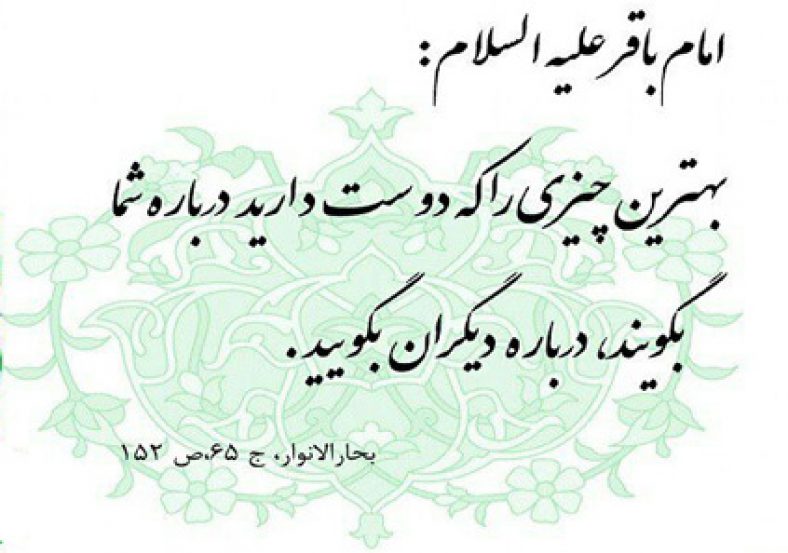 امام باقر علیه السلام :
بهترین چیزی را که دوست دارید درباره شما
بگویند، درباره دیگران بگویید.
بحارالانوار، ج ۶۵،ص ۱۵۲